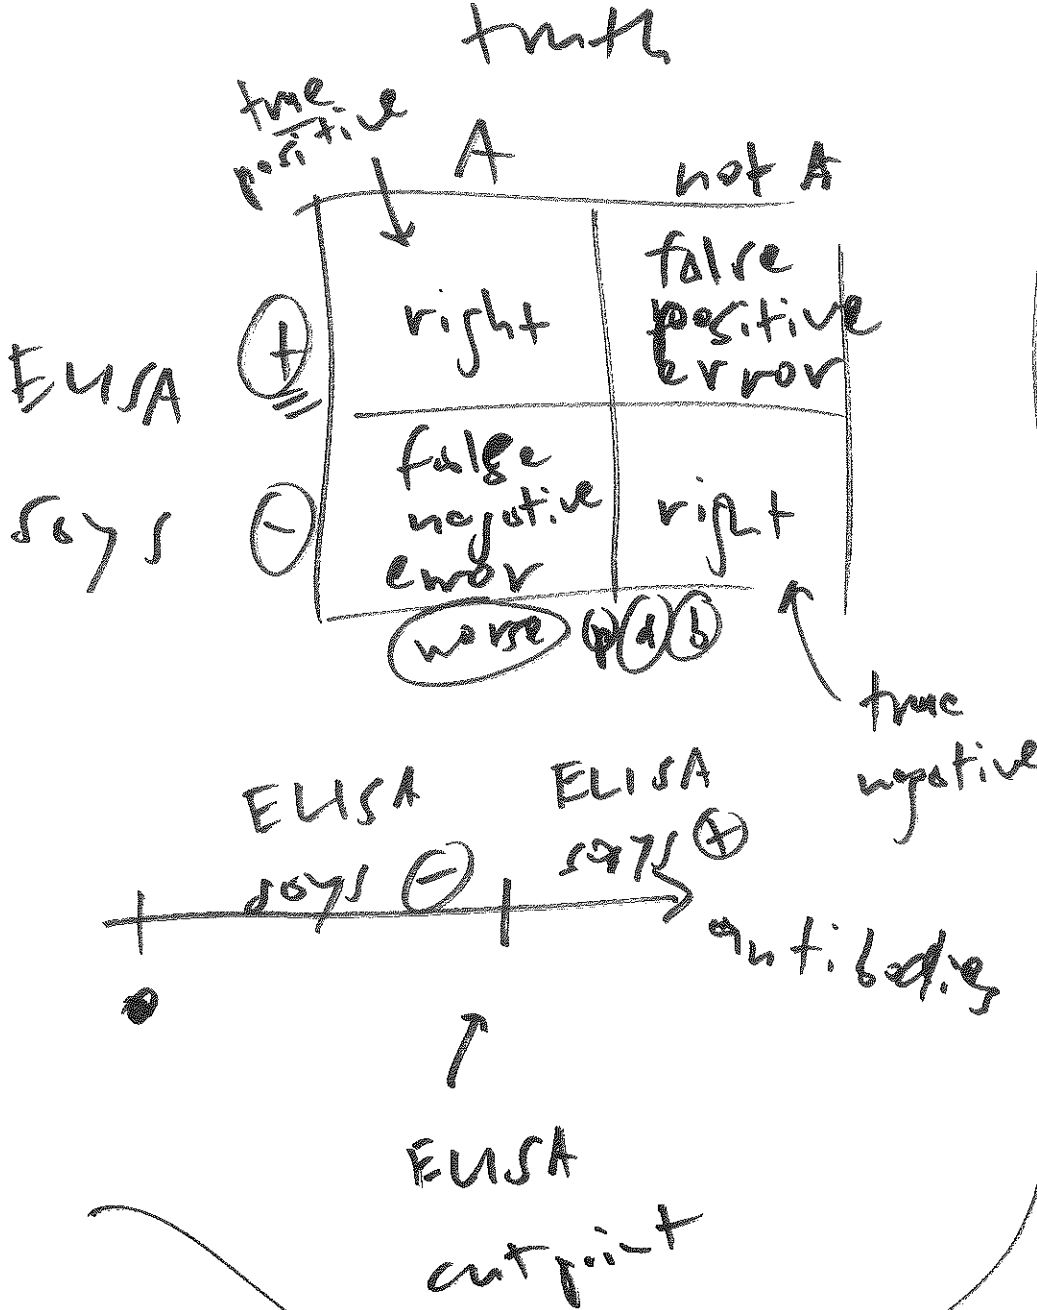 truth
true
positive
A
not A
right
false
positive
error
ELISA +
says -
false
negative
error
right
worse p d b
true
negative
ELISA
says -
ELISA
says +
antibodies
0
ELISA
cutpoint